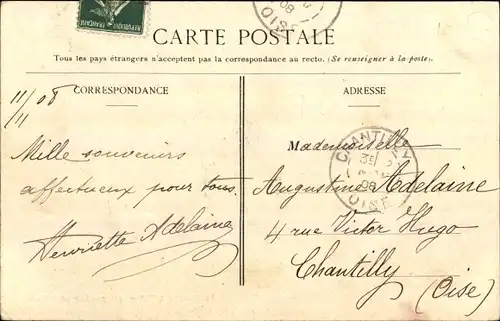 RÉPUBLIQUE FRANÇAISE
OISE
08
CARTE POSTALE
Tous les pays étrangers n'acceptent pas la correspondance au recto. (Se renseigner à la poste).
CORRESPONDANCE
ADRESSE
11/08
/11
Mille souvenirs
affectueux pour tous.
Henriette Adelaine
Mademoiselle
Augustine Adelaine
4 rue Victor Hugo
Chantilly
(Oise)
CHANTILLY
08
OISE